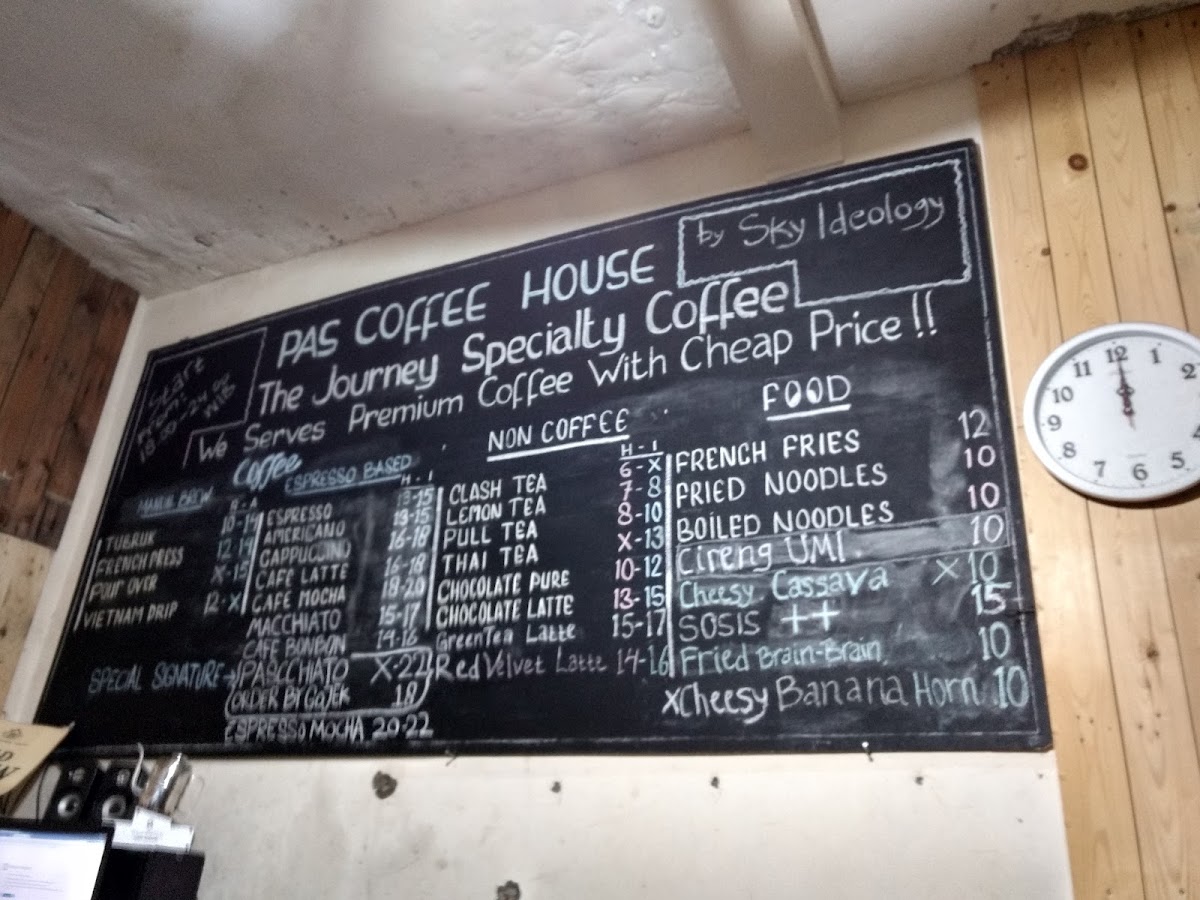 by Sky Ideology
PAS COFFEE HOUSE
The Journey Specialty Coffee
We Serves Premium Coffee With Cheap Price !!
Start
From:
WIB
Coffee
MANUAL BREW
TUBRUK 10-14
FRENCH PRESS 12-14
POUR OVER X-15
VIETNAM DRIP 12-X
ESPRESSO BASED
H - I
ESPRESSO 13-15
AMERICANO 13-15
CAPPUCCINO 16-18
CAFE LATTE 16-18
CAFE MOCHA 18-20
MACCHIATO 15-17
CAFE BONBON 14-16
SPECIAL SIGNATURE → PASCCHIATO X-22
ORDER BY GOJEK 18
ESPRESSO MOCHA 20-22
NON COFFEE
H - I
CLASH TEA 6-X
LEMON TEA 7-8
PULL TEA 8-10
THAI TEA X-13
CHOCOLATE PURE 10-12
CHOCOLATE LATTE 13-15
GreenTea Latte 15-17
Red Velvet Latte 14-16
FOOD
FRENCH FRIES 12
FRIED NOODLES 10
BOILED NOODLES 10
Cireng UMI 10
Cheesy Cassava X 10
SOSIS ++ 15
Fried Brain-Brain 10
XCheesy Banana Horn 10
11 12 1
10 2
9
8 4
7 6 5